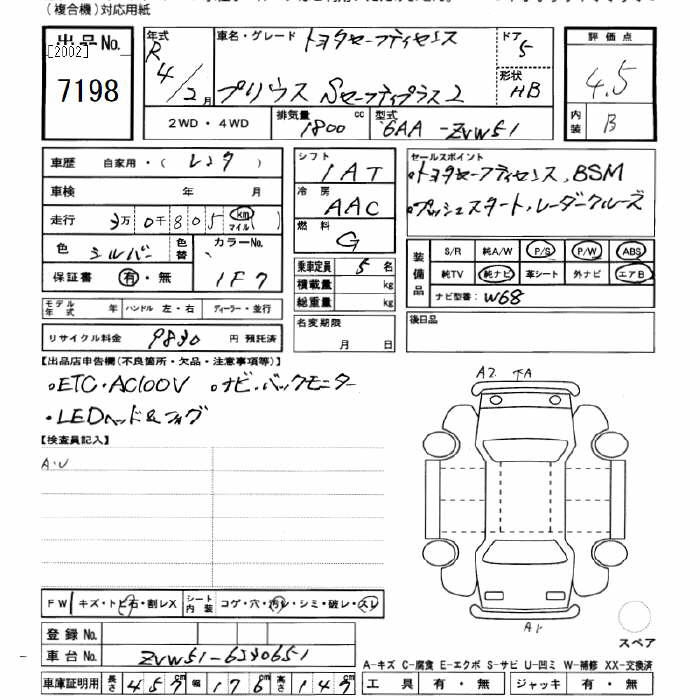 (複合機)対応用紙
出品No.
[2002]
7198
年式 R4/2月
車名・グレード トヨタセーフティセンス
プリウス Sセーフティプラス2
ドア 5
形状 HB
評価点 4.5
内装 B
2WD・4WD
排気量 1800 cc
型式 6AA-ZVW51
車歴 自家用・(レンタ)
車検 年 月
走行 3万0千805 km マイル ( )
色 シルバー
色替
カラーNo. 1F7
保証書 有・無
モデル年式 年
ハンドル 左・右
ディーラー・並行
リサイクル料金 9830 円 預託済
シフト 1AT
冷房 AAC
燃料 G
乗車定員 5名
積載量 kg
総重量 kg
名変期限 月 日
セールスポイント
・トヨタセーフティセンス,BSM
・プッシュスタート,レーダークルーズ
装備品
S/R 純A/W P/S P/W ABS
純TV 純ナビ 革シート 外ナビ エアB
ナビ型番: W68
後日品
【出品店申告欄(不良箇所・欠品・注意事項等)】
・ETC・AC100V ・ナビ・バックモニター
・LEDヘッド&フォグ
【検査員記入】
A・U
A2 A
A1
スペア
FW キズ・トビ石・割レX
シート内装 コゲ・穴・汚レ・シミ・破レ・スレ
登録No.
車台No. ZVW51-6230651
車庫証明用 長さ 457 幅 176 高さ 147
A-キズ C-腐食 E-エクボ S-サビ U-凹ミ W-補修 XX-交換済
工具 有・無 ジャッキ 有・無